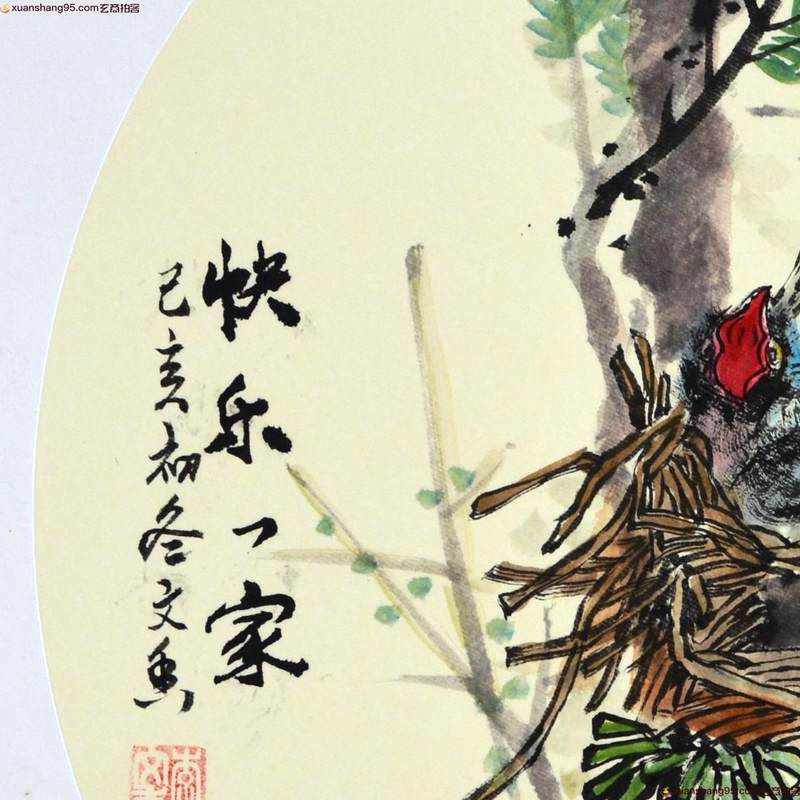 xuanshang95.com玄商拍客
快乐一家
己亥初冬文香
xuanshang95.com玄商拍客